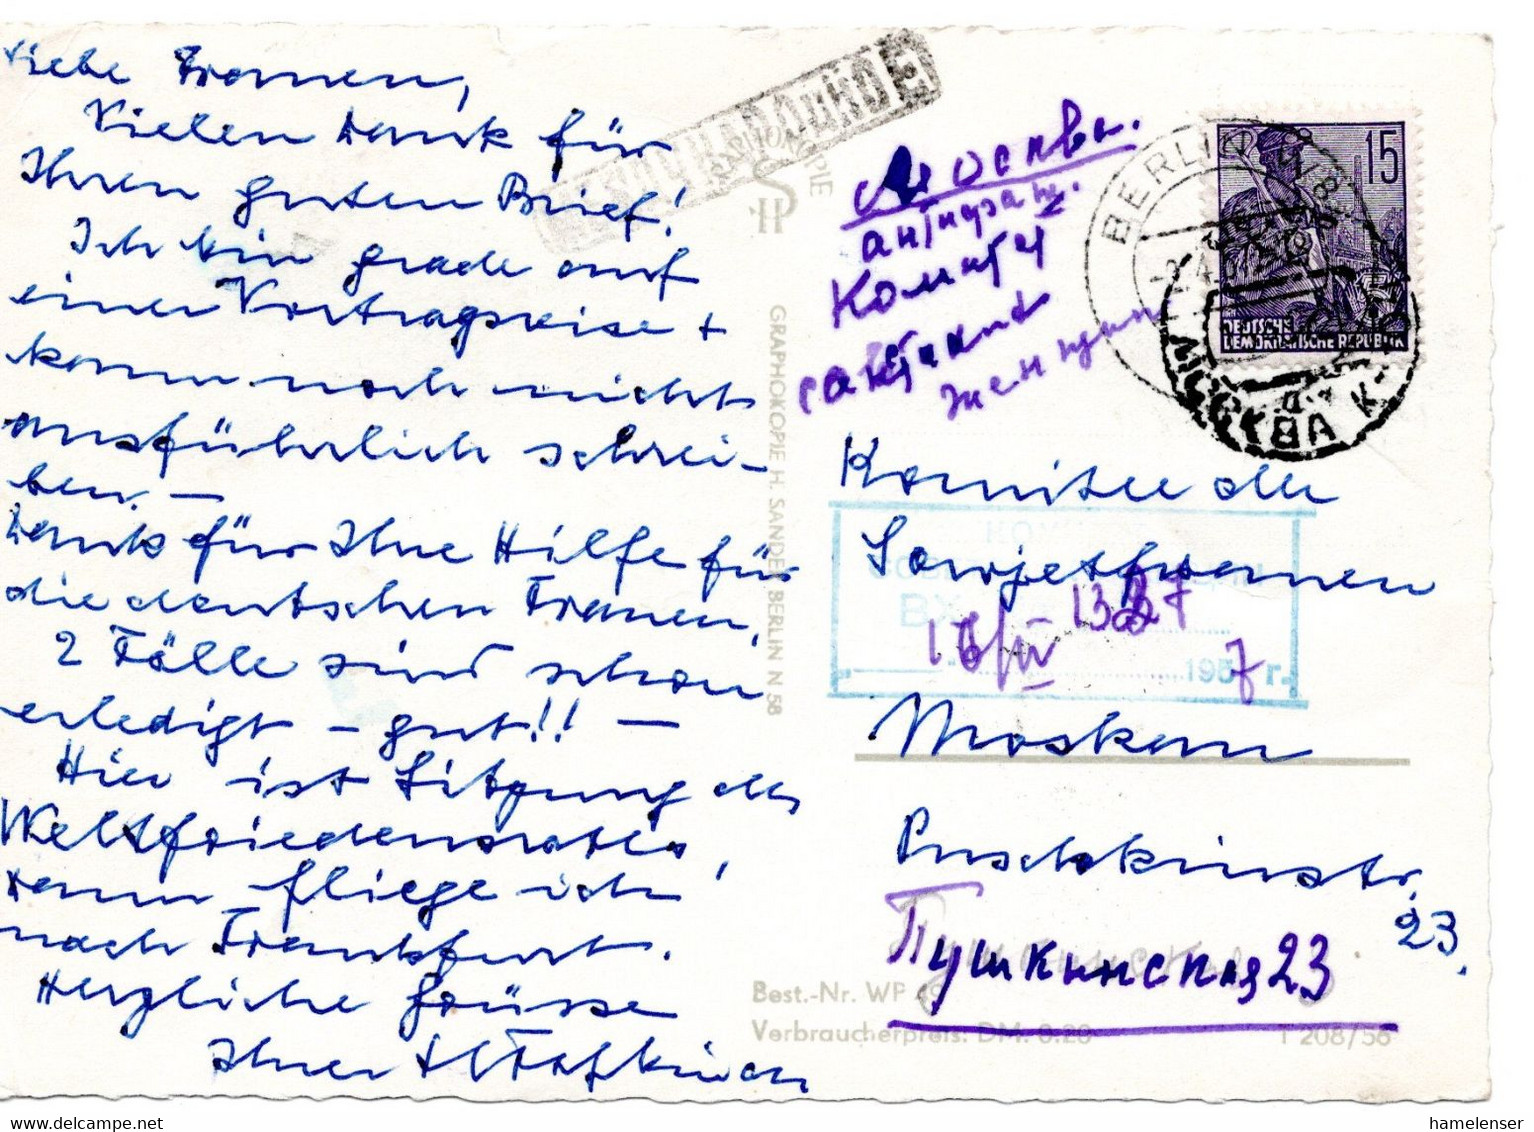 Liebe Frauen,
Vielen Dank für
Ihren guten Brief!
Ich bin grade auf
einer Vortragsreise +
kann noch nicht
ausführlich schrei-
ben. –
Dank für Ihre Hilfe für
die deutschen Frauen,
2 Fälle sind schon
erledigt – gut!! –
Hier ist Sitzung des
Weltfriedensrates,
dann fliege ich
nach Frankfurt.
Herzliche Grüsse
Ihre
GRAPHOKOPIE
GRAPHOKOPIE H. SANDER, BERLIN N 58
Москва.
антифаш.
Комитет
советских
женщин
BERLIN W8
МОСКВА
15
DEUTSCHE
DEMOKRATISCHE REPUBLIK
Komitee der
Sowjetfrauen
1327
16/IV
1957 г.
Moskau
Puschkinstr.
23.
Пушкинская 23
Best.-Nr. WP 49
Verbraucherpreis: DM. 0.20
T 208/56
hamelenser